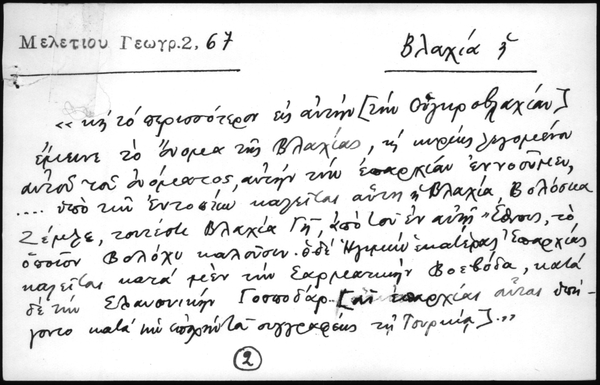 Μελετίου Γεωγρ.2, 67
Βλαχία ἡ
« κὴ τὸ περισσότερον εἰς αὐτὴν [τὴν Οὐγκροβλαχίαν]
ἔμεινε τὸ ὄνομα τῆς Βλαχίας, κὴ κυρίως λεγομένου
αὐτοῦ τοῦ ὀνόματος, αὐτὴν τὴν ἐπαρχίαν ἐννοοῦμεν,
.... ὑπὸ τῶν Ἐντοπίων καλεῖται αὕτη ἡ Βλαχία Βολόσκα
Ζέμλε, τουτέστι Βλαχία Γῆ, ἀπὸ τοῦ ἐν αὐτῇ Ἔθνους, τὸ
ὁποῖον Βολόχυ καλοῦσιν. ὁ δὲ Ἡγεμὼν ἑκατέρας Ἐπαρχίας
καλεῖται κατὰ μὲν τὴν Σαρματικὴν Βοεβόδα, κατὰ
δὲ τὴν Σλαβονικὴν Γοσποδάρ. [αἱ ἐπαρχίαι αὗται ὑπή-
γοντο κατὰ τὴν συγγραφέως τῇ Τουρκίᾳ].»
2